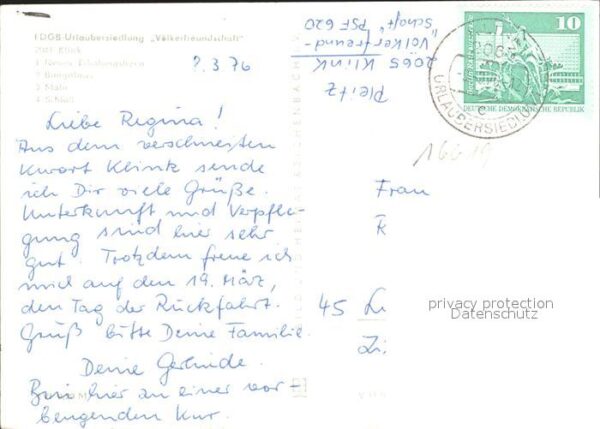 FDGB-Urlaubersiedlung „Völkerfreundschaft"
2061 Klink
2 Bungalows
3 Malu
4 Schloß
7.3.76
Liebe Regina!
Aus dem verschneiten
Kurort Klink sende
ich Dir viele Grüße.
Unterkunft und Verpfle-
gung sind hier sehr
gut. Trotzdem freue ich
mich auf den 19. März,
den Tag der Rückfahrt.
Gruß bitte Deine Familie.
Deine Gerlinde.
Bin hier zu einer vor-
beugenden Kur.
Pleitz
2065 Klink
"Völkerfreund-
schaft" PSF 620
10
DEUTSCHE DEMOKRATISCHE REPUBLIK
URLAUBERSIEDLUNG
c
1669
Frau
45
privacy protection
Datenschutz